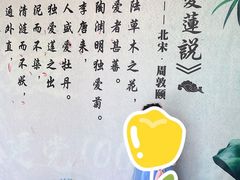 愛蓮説》
——北宋·周敦頤
陸草木之花，
愛者甚蕃。
陶淵明獨愛菊。
李唐來，
人盛愛牡丹。
獨愛蓮之出
泥而不染，
清漣而不妖，
通外直，